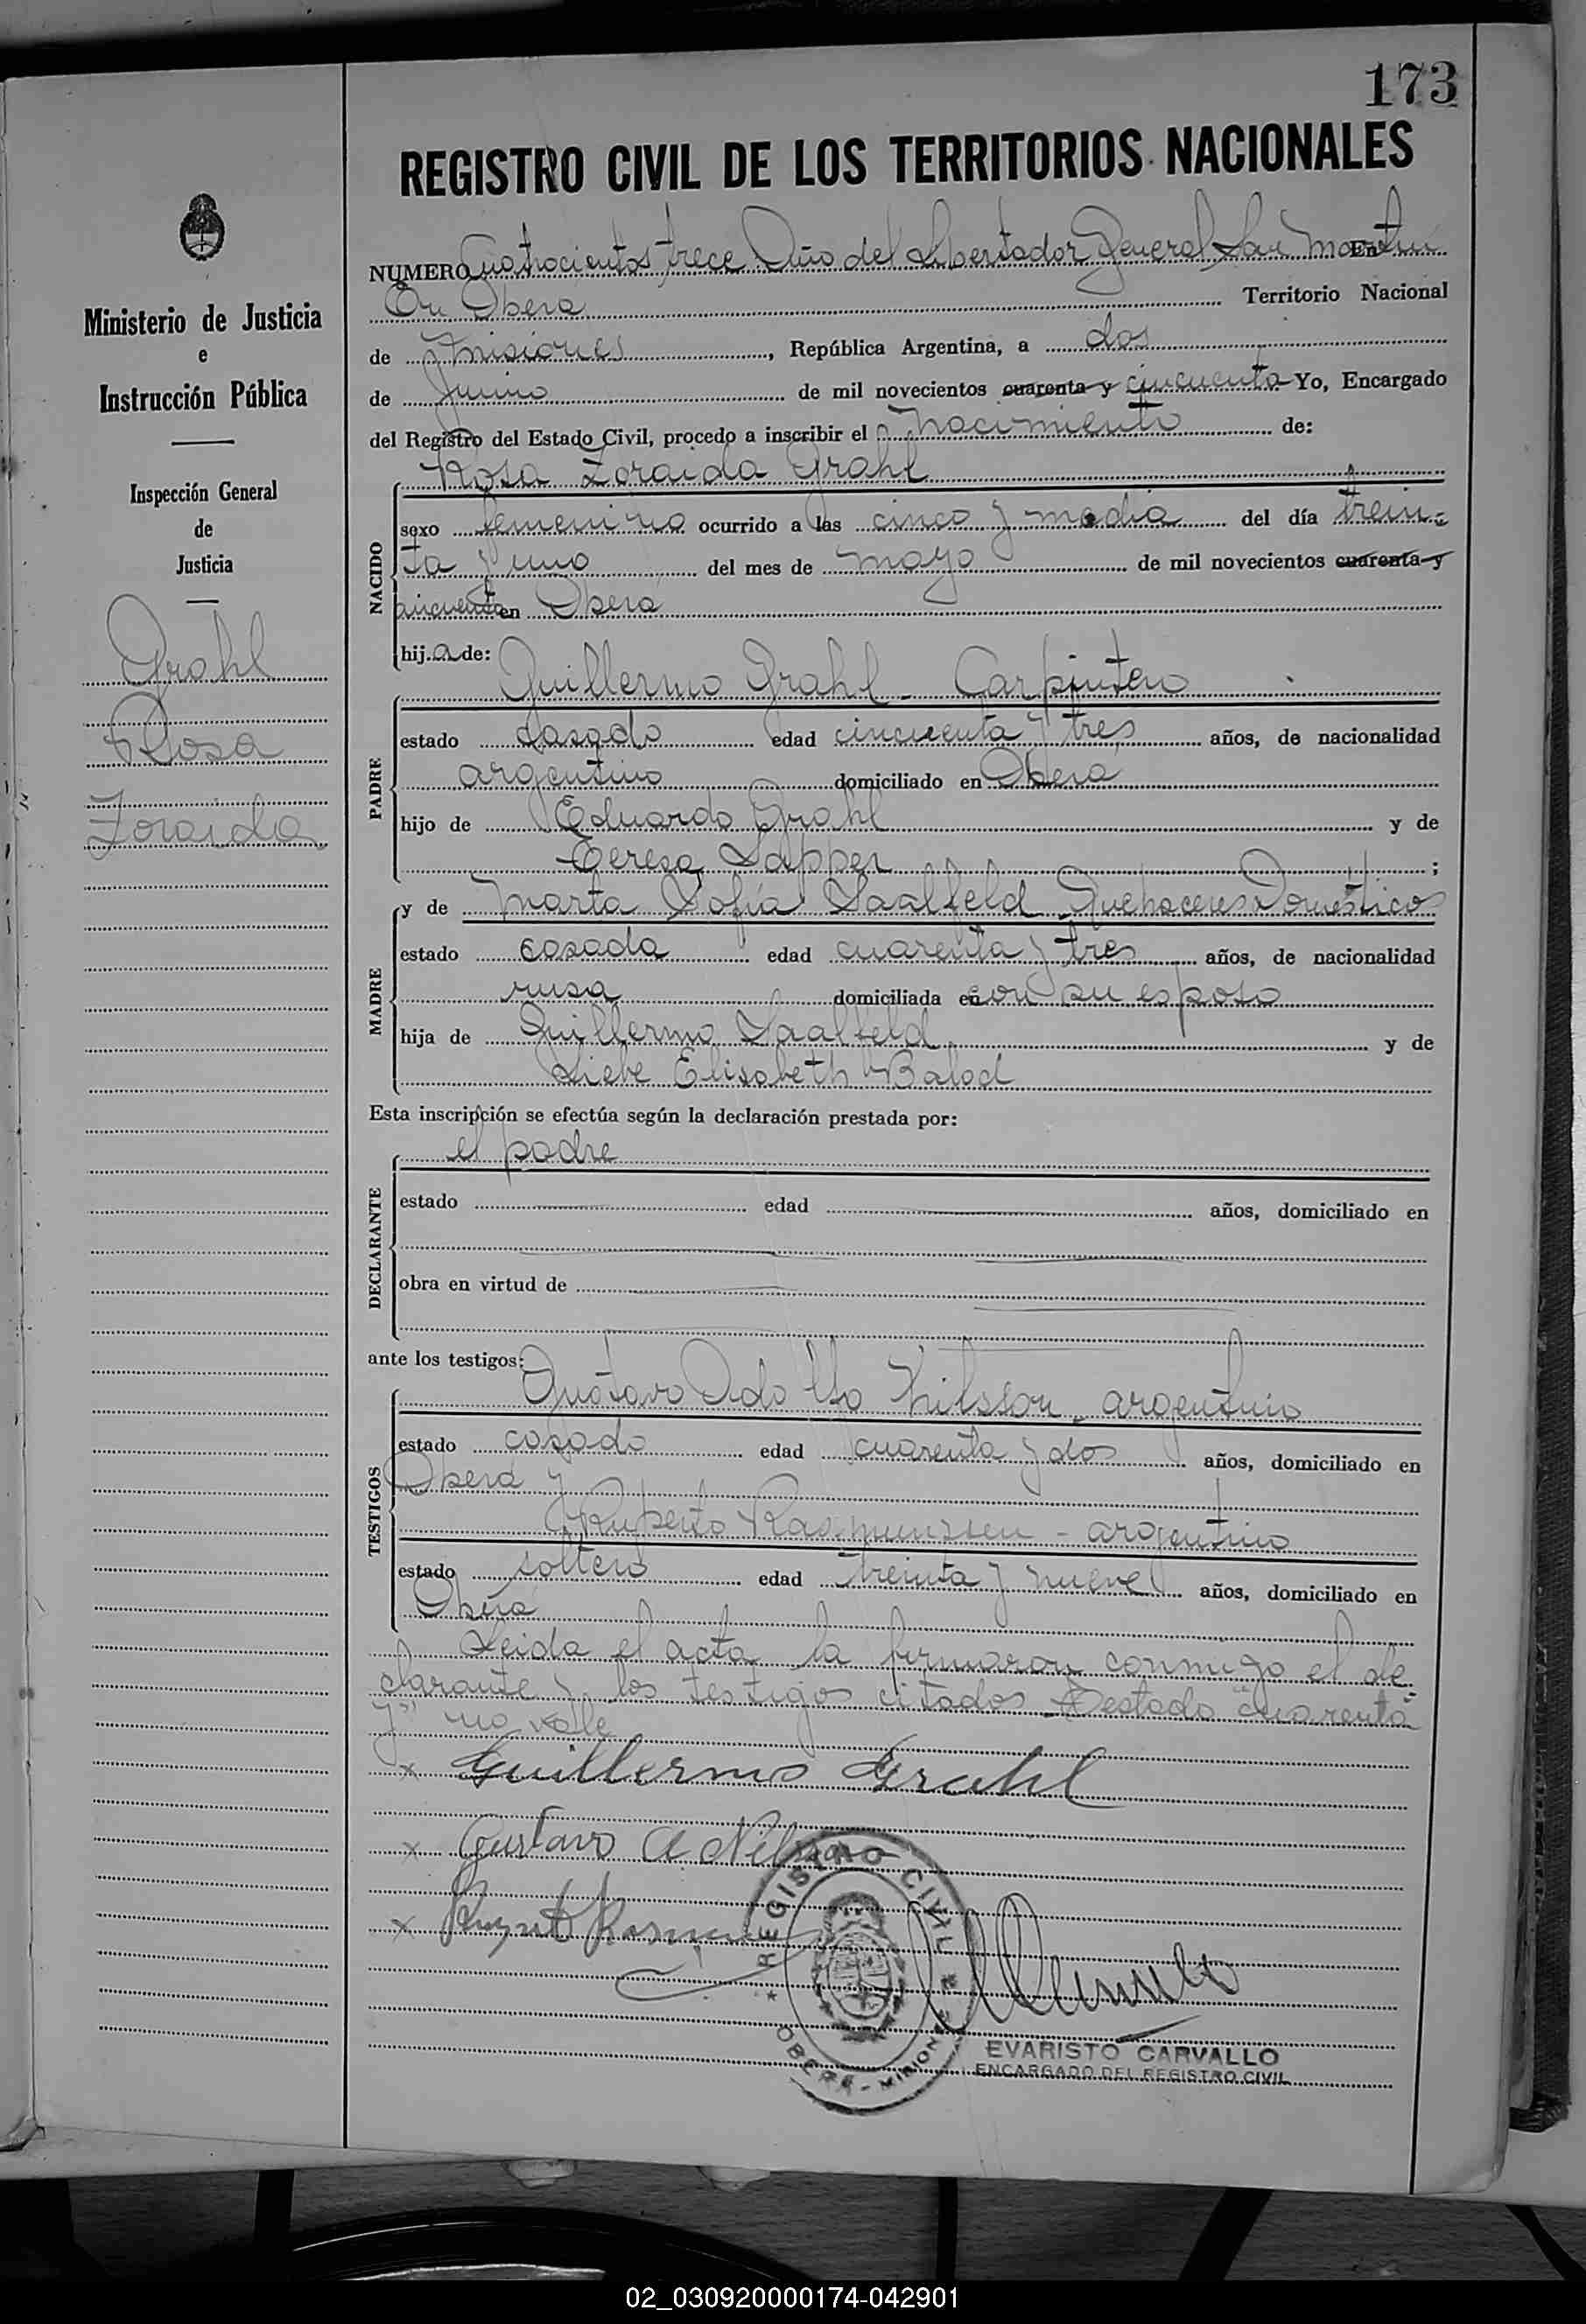 173
REGISTRO CIVIL DE LOS TERRITORIOS NACIONALES
NUMERO Cuatrocientos trece Año del Libertador General San Martín En
En Obera Territorio Nacional
de Misiones, República Argentina, a dos
de Junio de mil novecientos cuarenta y cincuenta Yo, Encargado
del Registro del Estado Civil, procedo a inscribir el nacimiento de:
Rosa Zoraida Grahl
NACIDO
sexo femenino ocurrido a las cinco y media del día trein-
ta y uno del mes de mayo de mil novecientos cuarenta y
cincuenta en Obera
hija de:
Guillermo Grahl - Carpintero
PADRE
estado casado edad cincuenta y tres años, de nacionalidad
argentino domiciliado en Obera
hijo de Eduardo Grahl y de
Teresa Sapper ;
y de Marta Sofía Saalfeld Quehaceres Domésticos
MADRE
estado casada edad cuarenta y tres años, de nacionalidad
rusa domiciliada en con su esposo
hija de Guillermo Saalfeld y de
Liebe Elisabeth Balod
Esta inscripción se efectúa según la declaración prestada por:
el padre
DECLARANTE
estado edad años, domiciliado en
obra en virtud de
ante los testigos:
Gustavo Adolfo Nilsson - argentino
TESTIGOS
estado casado edad cuarenta y dos años, domiciliado en
Obera y
Ruperto Rasmunssen - argentino
estado soltero edad treinta y nueve años, domiciliado en
Obera
Leida el acta la firmaron conmigo el de-
clarante y los testigos citados - Testado "cuarenta
y" no vale
x Guillermo Grahl
x Gustavo A Nilsson
x
REGISTRO CIVIL
OBERÁ - MISIONES
EVARISTO CARVALLO
ENCARGADO DEL REGISTRO CIVIL
Ministerio de Justicia
e
Instrucción Pública
Inspección General
de
Justicia
Grahl
Rosa
Zoraida
02_030920000174-042901